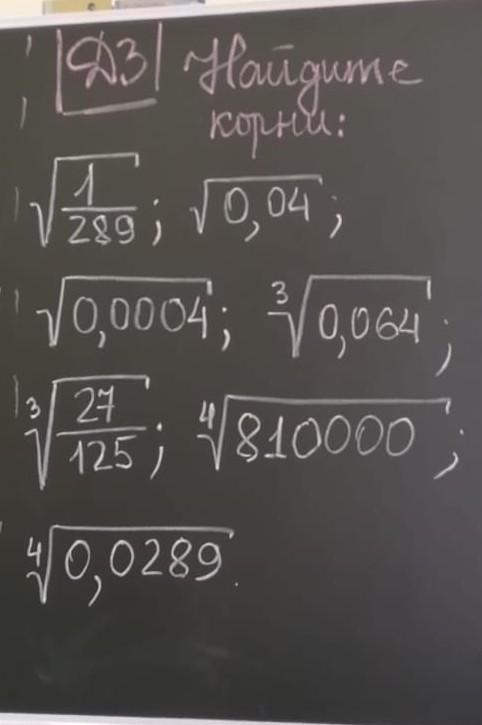 ДЗ Найдите
корни:
√(1/289); √0,04;
√0,0004; ³√0,064;
³√(27/125); ⁴√810000;
⁴√0,0289.